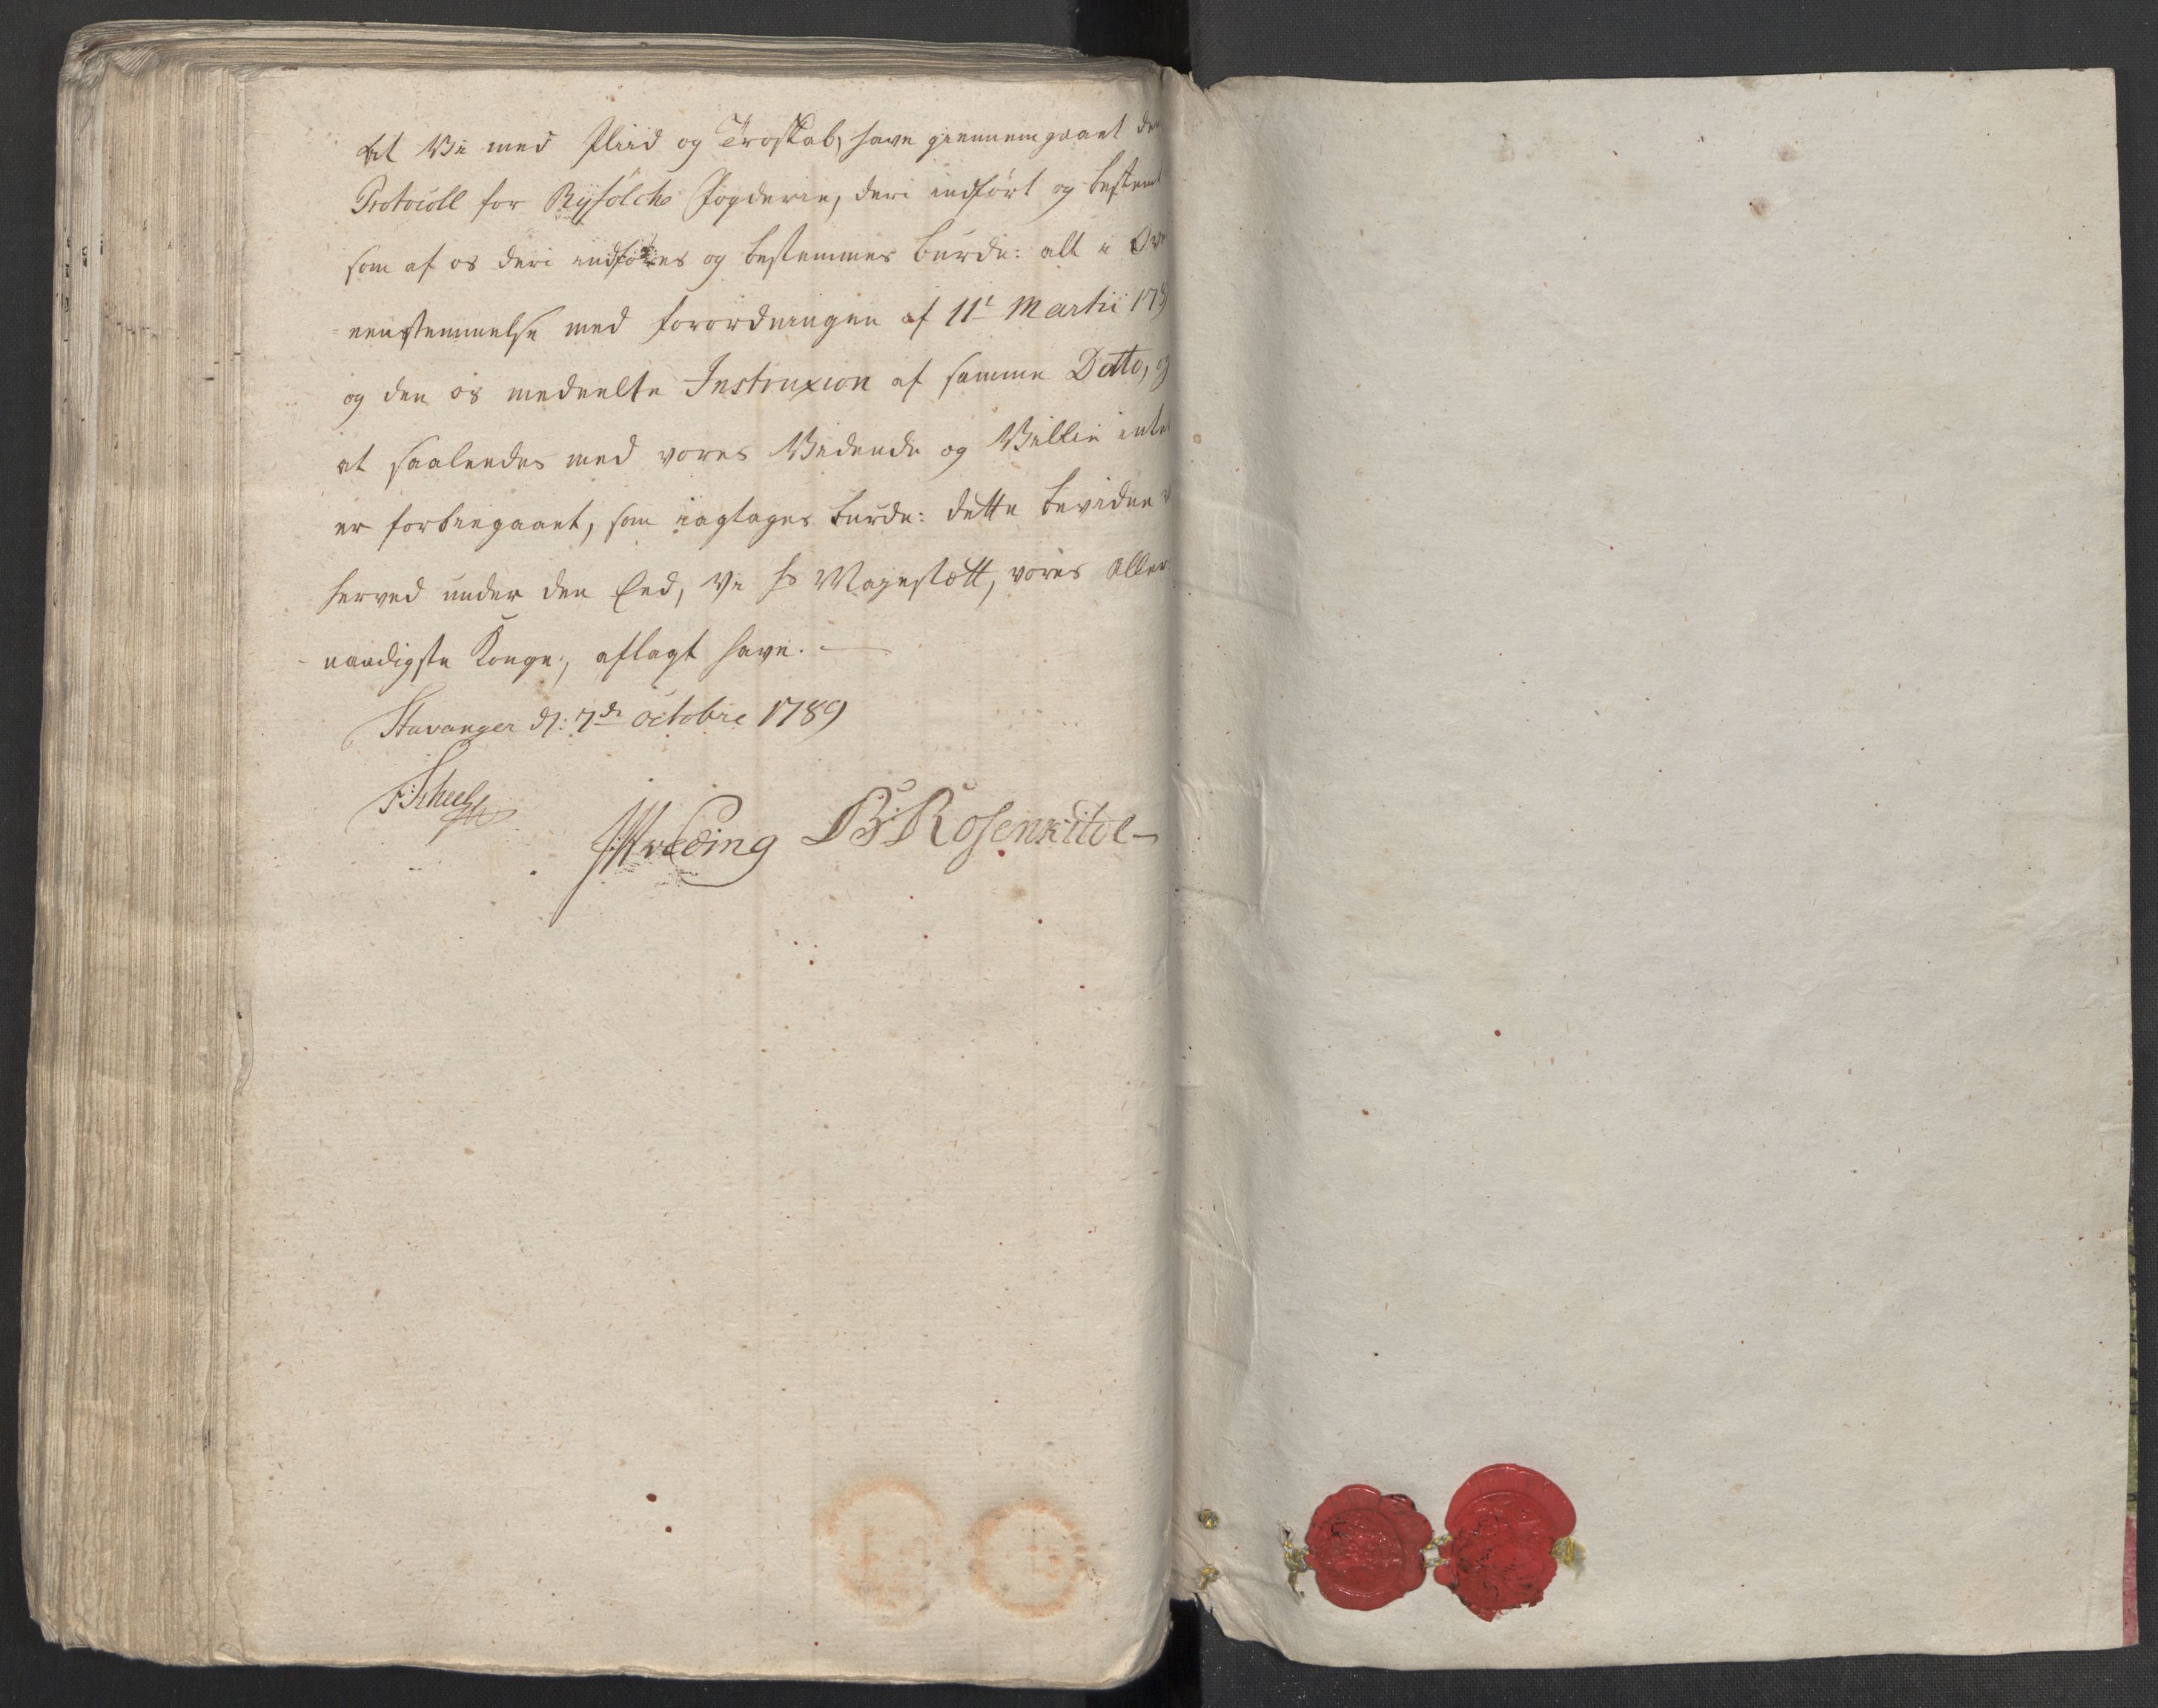 At Vi med Fliid og Troskab, have giennemgaaet
Protocoll for Ryfölche Fogderie, deri indført og bestemt
som af os deri indføres og bestemmes burde: alt i Ove
eenstemmelse med forordningen af 11t Martii 178
og den os meddeelte Instruxion af samme Datto, og
at saaleedes med vores Vidende og Villie intet
er forbiegaaet, som iagtages burde: dette bevidne
herved under den Eed, Vi hs Mayestætt, vores Aller
naadigste Konge, aflagt have. —
Stavanger d: 7de Octobre 1789
FScheel
B: Rosenkilde —